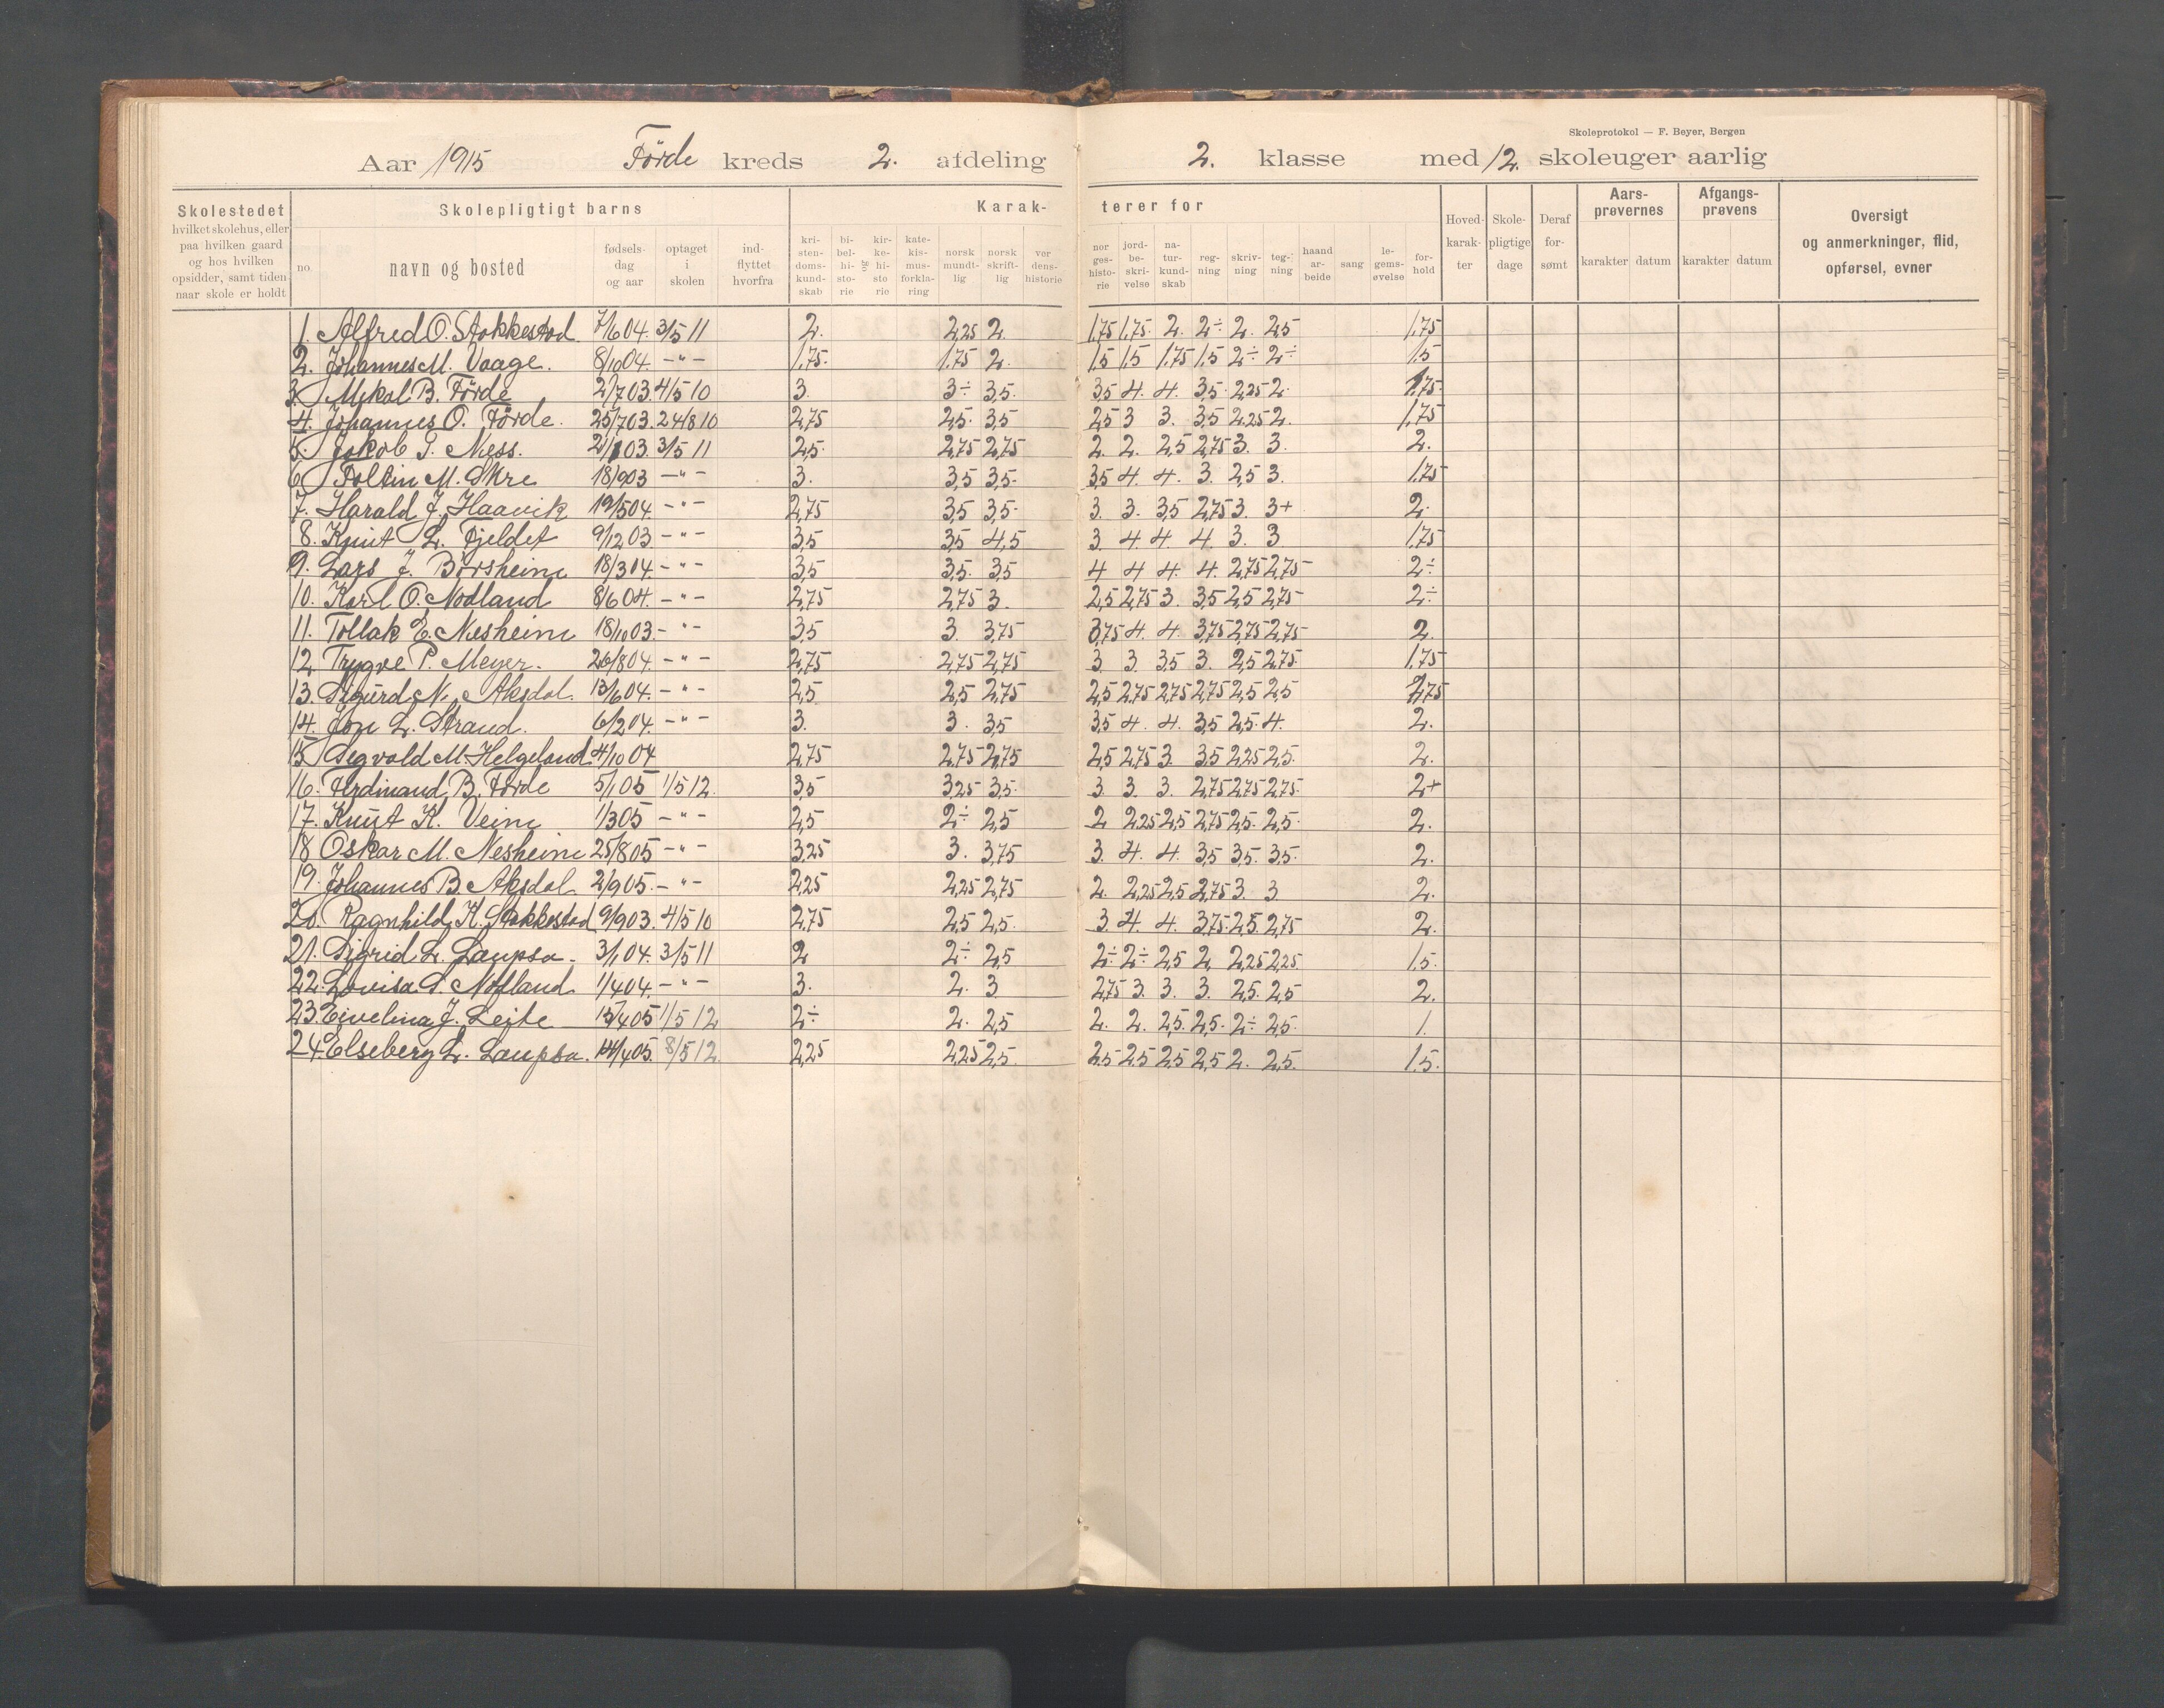 Skoleprotokol — F. Beyer, Bergen
Aar 1915 Förde kreds 2. afdeling 2. klasse med 12. skoleuger aarlig
Skolestedet hvilket skolehus, eller paa hvilken gaard og hos hvilken opsidder, samt tiden naar skole er holdt
Skolepligtigt barns
no. navn og bosted fødsels- dag og aar optaget i skolen ind- flyttet hvorfra
Karak- terer for
kri- sten- doms- kund- skab bi- bel- hi- sto- rie kir- ke- hi- sto rie kate- kis- mus- forkla- ring norsk mundt- lig norsk skrift- lig ver dens- historie nor ges- histo- rie jord- be- skri- velse na- tur- kund- skab reg- ning skriv- ning teg- ning haand ar- beide sang le- gems- øvelse for- hold
Hoved- karak- ter Skole- pligtige dage Deraf for- sømt Aars- prøvernes karakter datum Afgangs- prøvens karakter datum
Oversigt og anmerkninger, flid, opførsel, evner
1. Alfred O. Stokkestad 7/6 04. 3/5 11 2. 2,25 2. 1,75 1,75. 2. 2÷ 2. 2,5 1,75
2. Johannes M. Vaage. 8/10 04. -"- 1,75. 1,75 2. 1,5 1,5 1,75 1,5 2÷ 2÷ 1,5
3. Mikal B. Förde 2/7 03. 4/5 10 3. 3÷ 3,5. 3,5 4. 4. 3,5. 2,25 2. 1,75.
4. Johannes O. Förde. 25/7 03. 24/8 10 2,75 2,5. 3,5 2,5 3 3. 3,5 2,25 2. 1,75
5. Jakob T. Ness. 2/1 03. 3/5 11 2,5. 2,75 2,75 2. 2. 2,5 2,75 3. 3. 2.
6. M. Skre 18/9 03 -"- 3. 3,5 3,5. 3,5 4. 4. 3. 2,5 3. 1,75
7. Harald J. Haavik 19/5 04. -"- 2,75 3,5 3,5. 3. 3. 3,5 2,75 3. 3+ 2.
8. Knut L. Fjeldet 9/12 03. -"- 3,5 3,5 4,5 3. 4. 4. 4. 3. 3 1,75
9. Lars J. Börsheim 18/3 04. -"- 3,5 3,5. 3,5 4 4 4. 4. 2,75 2,75 2÷
10. Karl O. Nodland 8/6 04. -"- 2,75 2,75 3. 2,5 2,75 3. 3,5 2,5 2,75 2÷
11. Tollak E. Nesheim 18/10 03. -"- 3,5 3. 3,75 3,75 4. 4. 3,75 2,75 2,75 2.
12. Trygve P. Meyer. 26/8 04. -"- 2,75 2,75 2,75 3. 3. 3,5 3. 2,5 2,75. 1,75
13. Sigurd N. Aksdal. 13/6 04. -"- 2,5 2,5 2,75 2,5 2,75 2,75 2,75 2,5 2,5 1,75
14. Jon L. Strand. 6/2 04. -"- 3. 3. 3,5 3,5 4. 4. 3,5 2,5. 4. 2.
15. Segvald M. Helgeland 4/10 04 2,75 2,75 2,75 2,5 2,75 3. 3,5 2,25 2,5. 2.
16. Ferdinand B. Förde 5/1 05 1/5 12. 3,5 3,25 3,5. 3. 3. 3. 2,75 2,75 2,75. 2+
17. Knut K. Veim 1/3 05 -"- 2,5 2÷ 2,5 2 2,25 2,5 2,75 2,5. 2,5 2.
18. Oskar M. Nesheim 25/8 05 -"- 3,25 3. 3,75 3. 4. 4. 3,5 3,5. 3,5. 2.
19. Johannes B. Aksdal 2/9 05. -"- 2,25 2,25 2,75 2. 2,25 2,5 2,75 3. 3 2.
20. Ragnhild K. Stakkestad 9/9 03. 4/5 10 2,75 2,5 2,5. 3. 4. 4. 3,75. 2,5. 2,75 2.
21. Sigrid L. Laupsa. 3/1 04. 3/5 11 2 2÷ 2,5 2÷ 2÷ 2,5 2. 2,25 2,25. 1,5.
22. Lovisa S. Nodland 1/4 04. -"- 3. 2. 3 2,75 3. 3. 3. 2,5. 2,5 2.
23. Eivelina J. Lejte 15/4 05 1/5 12 2÷ 2. 2,5 2. 2. 2,5. 2,5. 2÷ 2,5. 1.
24. Elseberg L. Laupsa. 14/4 05. 8/5 12. 2,25 2,25 2,5. 2,5 2,5 2,5 2,5 2. 2,5. 1,5.